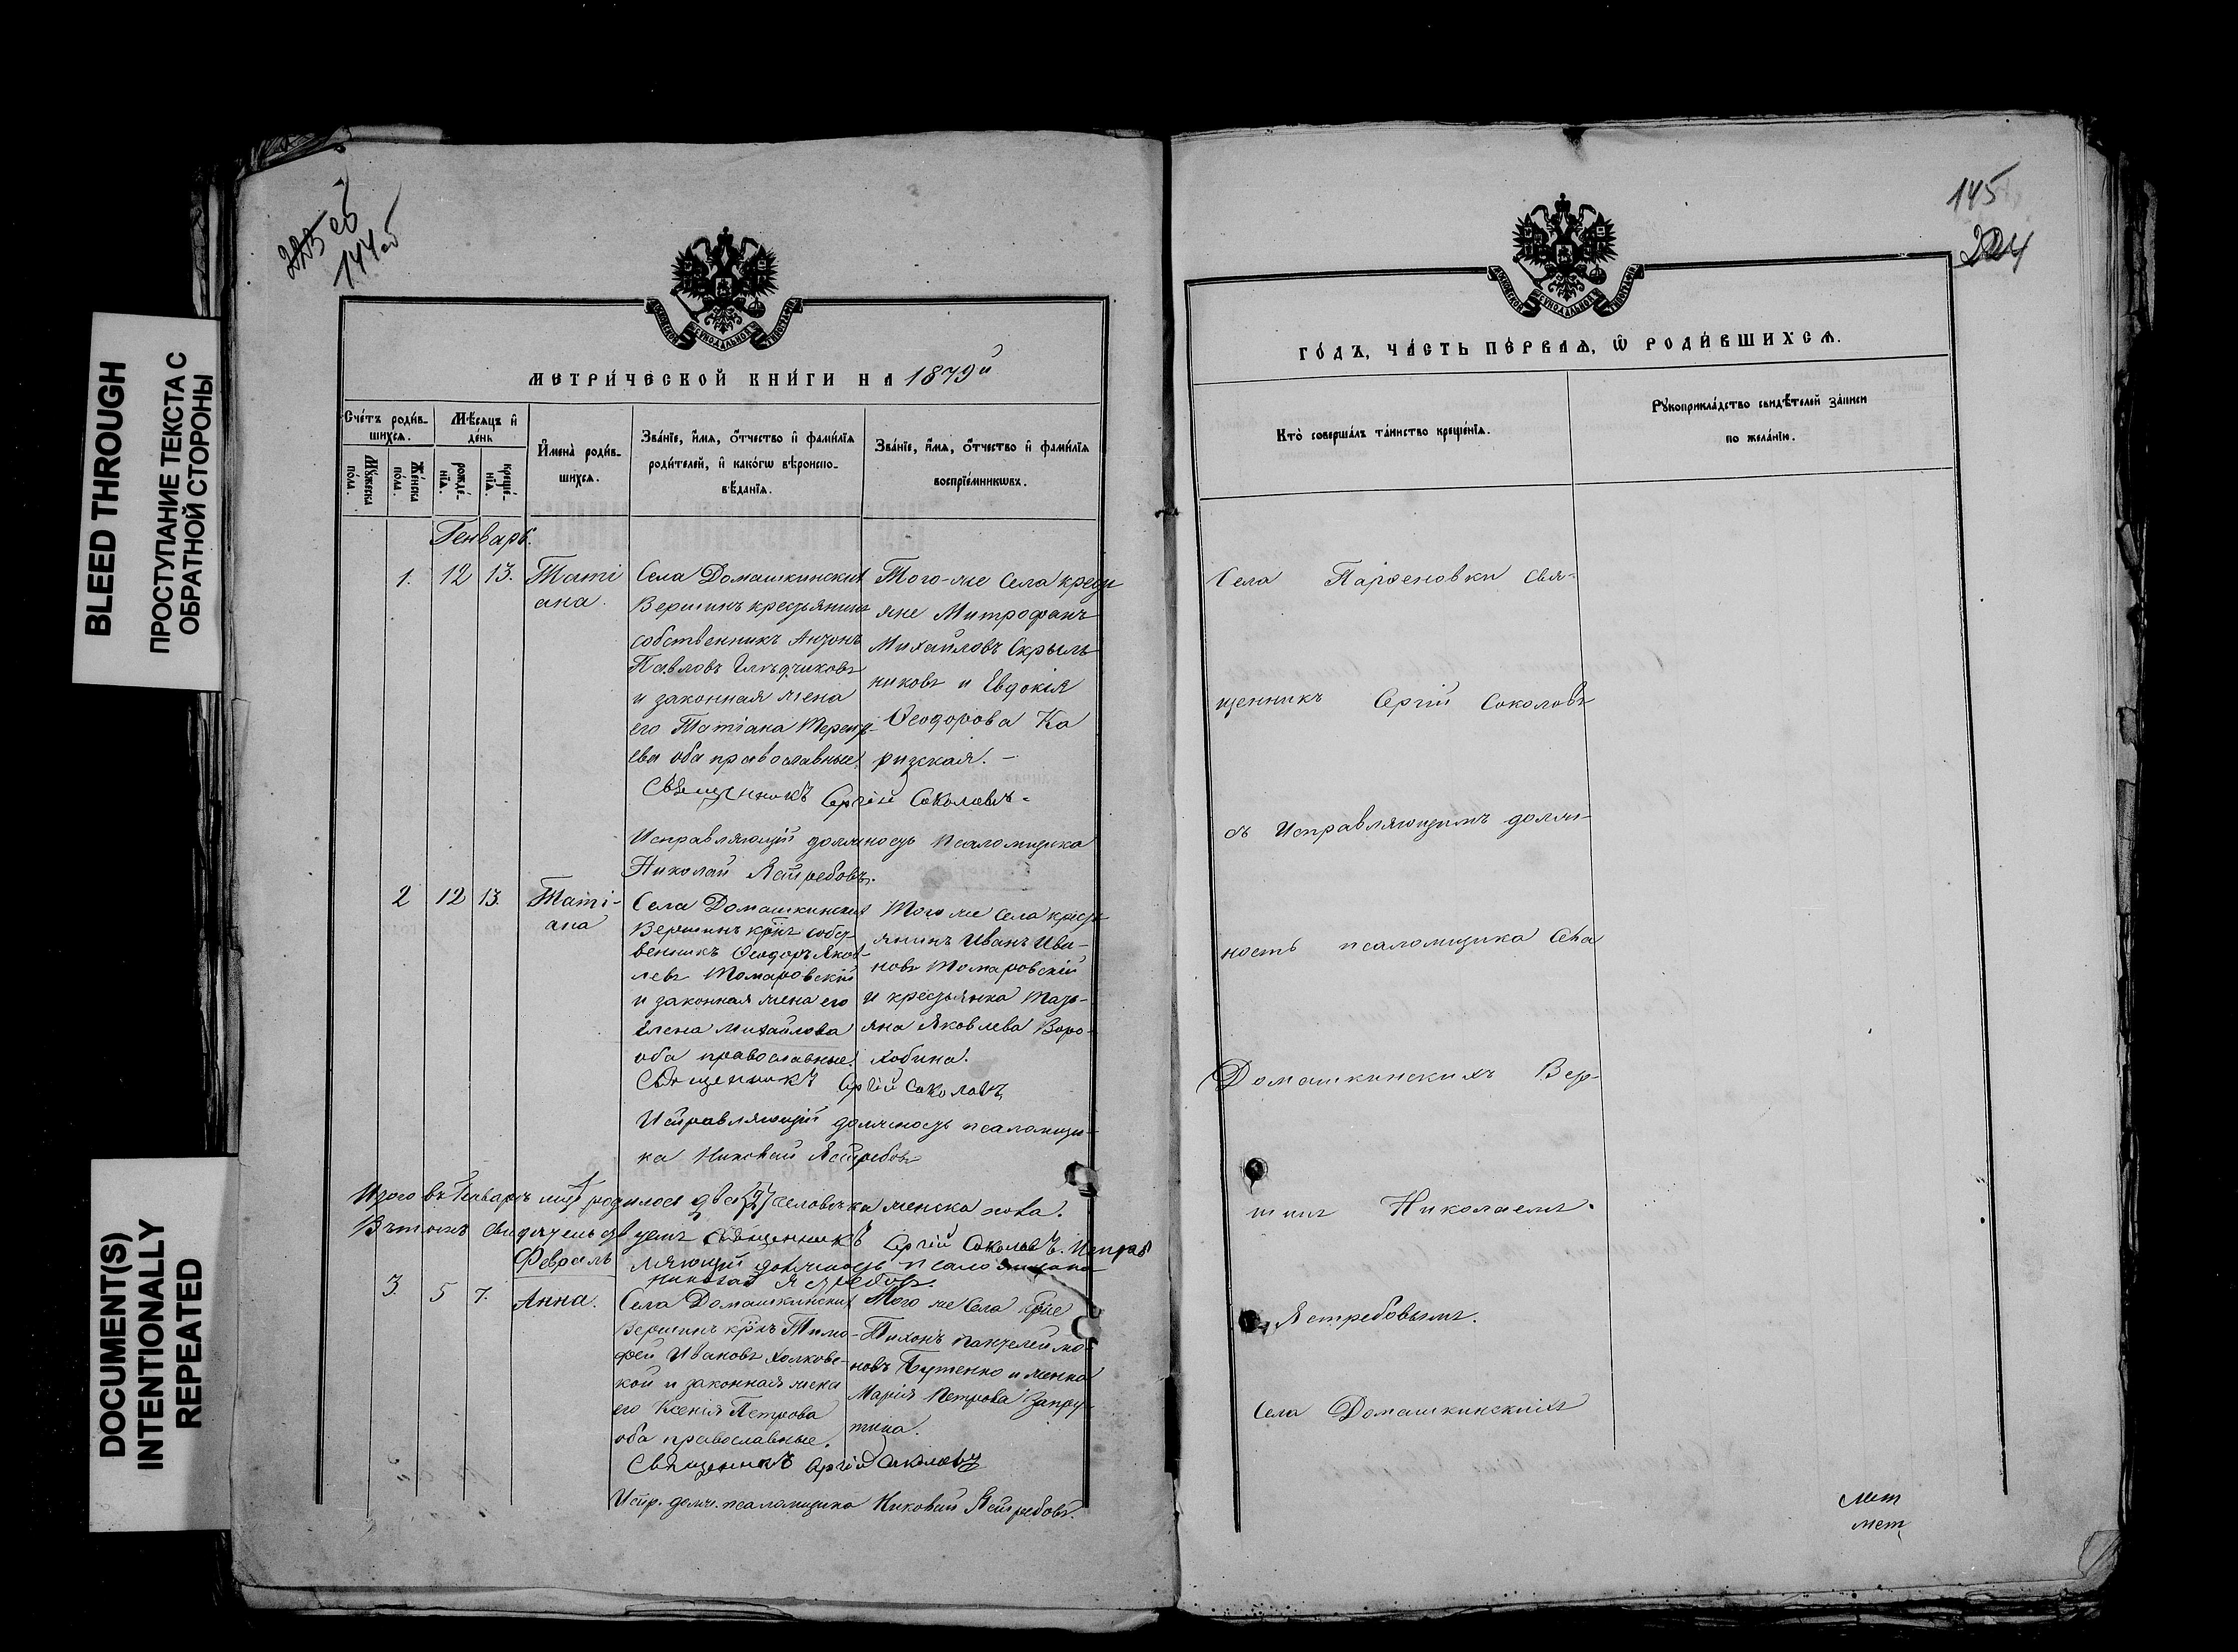 BLEED THROUGH
ПРОСТУПАНИЕ ТЕКСТА С
ОБРАТНОЙ СТОРОНЫ
DOCUMENT(S)
INTENTIONALLY
REPEATED
223 об
144 об
МОСКОВСКОЙ СѴНОДАЛЬНОЙ ТИПОГРАФІИ
МЕТРИ́ЧЕСКОЙ КНИ́ГИ НА 1879й
Сче́тъ роди́в-
шихсѧ.
Мѣ́сѧцъ и҆
де́нь
Мꙋ́жеска
по́ла.
Же́нска
по́ла.
рожде́-
нїѧ.
креще́-
нїѧ.
И҆мена̀ роди́в-
шихсѧ.
Зва́нїе, и҆́мѧ, ѻ҆́тчество и҆ фами́лїѧ
роди́телей, и҆ како́гѡ вѣроиспо-
вѣ́данїѧ.
Зва́нїе, и҆́мѧ, ѻ҆́тчество и҆ фами́лїѧ
воспрїе́мникѡвъ.
Генварь.
1. 12 13. Таті
ана.
Села Домашкинскихъ
Вершинъ крестьянинъ
собственникъ Антонъ
Павловъ
и законная жена
его Татіана Терент-
ева оба православные.
Того-же Села крест
яне Митрофанъ
Михайловъ Скрыль
никовъ и Евдокія
Ѳеодорова Ка
ризская. –
Священникъ Сергій Соколовъ.
Исправляющій должность Псаломщика
Николай Ястребовъ.
2 12 13. Таті-
ана
Села Домашкинскихъ
Вершинъ крнъ собст-
венникъ Ѳеодоръ Яков-
левъ Томаровскій
и законная жена его
Елена Михайлова
оба православные.
Того же Села крест
янинъ Иванъ Ива-
новъ Томаровскій
и крестьянка Тать-
яна Яковлева Воро-
Священникъ Сергій Соколовъ
Исправляющій должность псаломщи-
ка Николай Ястребовъ
Итого въ Генварѣ мцѣ родилось два {2} человѣка женска пола.
Въ томъ свидѣтельствуемъ Священникъ Сергій Соколовъ. Исправ
ляющій должность псаломщика
Николай Ястребовъ.
Февраль
3. 5 7. Анна.
Села Домашкинскихъ
Вершинъ крнъ Тимо-
фей Ивановъ Холковс-
кой и законная жена
его Ксенія Петрова
оба православные.
Того же Села крне
Тихонъ Пантелеймо-
новъ Бутенко и женка
Марія Петрова Запру-
тина.
Священникъ Сергій Соколовъ
Испр. долж. псаломщика Николай Ястребовъ.
145
224
МОСКОВСКОЙ СѴНОДАЛЬНОЙ ТИПОГРАФІИ
ГО́ДЪ, ЧА́СТЬ ПЕ́РВАѦ, Ѡ҆ РОДИ́ВШИХСѦ.
Кто̀ соверша́лъ та́инство креще́нїѧ.
Рꙋкоприкла́дство свидѣ́телей за́писи
по жела́нїю.
Села Парфеновки Свя-
щенникъ Сергій Соколовъ
съ Исправляющимъ долж-
ность псаломщика Села
Домашкинскихъ Вер-
шинъ Николаемъ
Ястребовымъ.
Села Домашкинскихъ